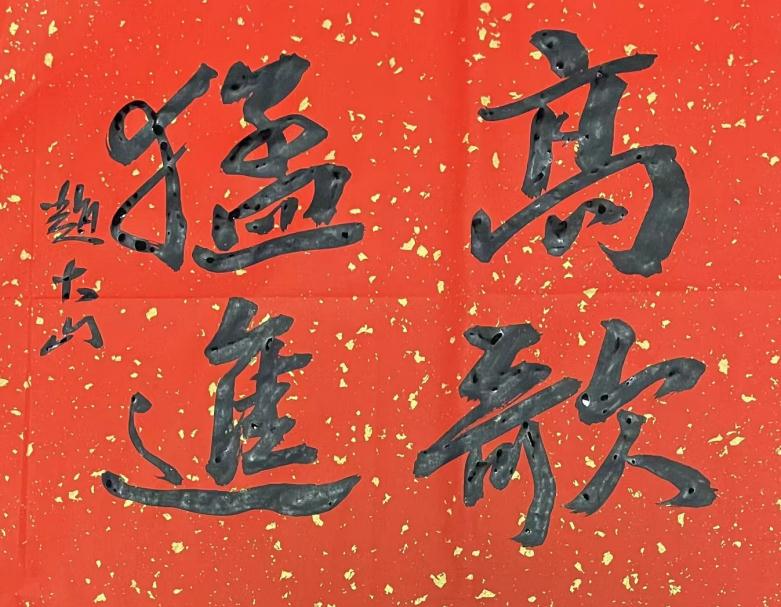 高歌
猛進
趙大山